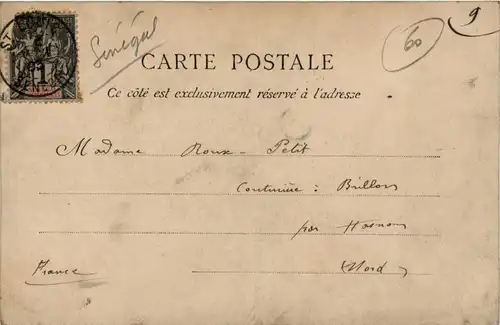 Sénégal
60
9
ST
1
CARTE POSTALE
Ce côté est exclusivement réservé à l'adresse
Madame Roux - Petit
Couturière : Brillon
par Hasnon
Nord
France